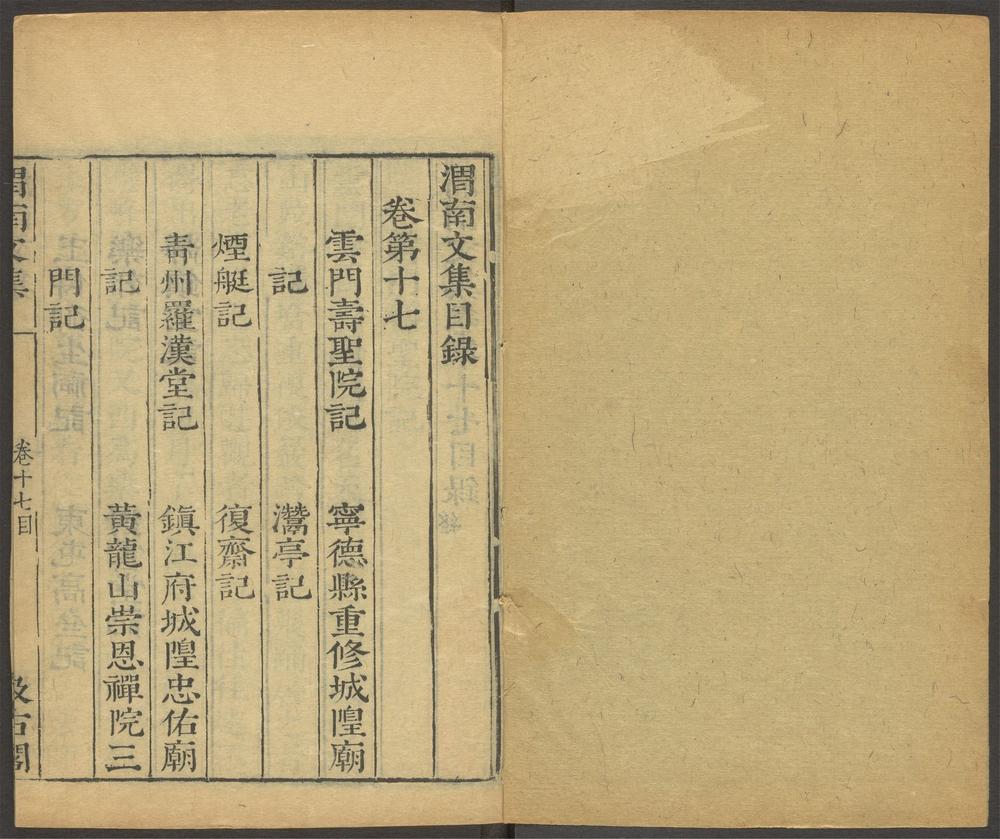 渭南文集目錄
卷第十七
雲門壽聖院記　寧德縣重修城隍廟
記　灊亭記
煙艇記　復齋記
青州羅漢堂記　鎮江府城隍忠佑廟
記　黃龍山崇恩禪院三
門記
渭南文集　卷十七目　汲古閣